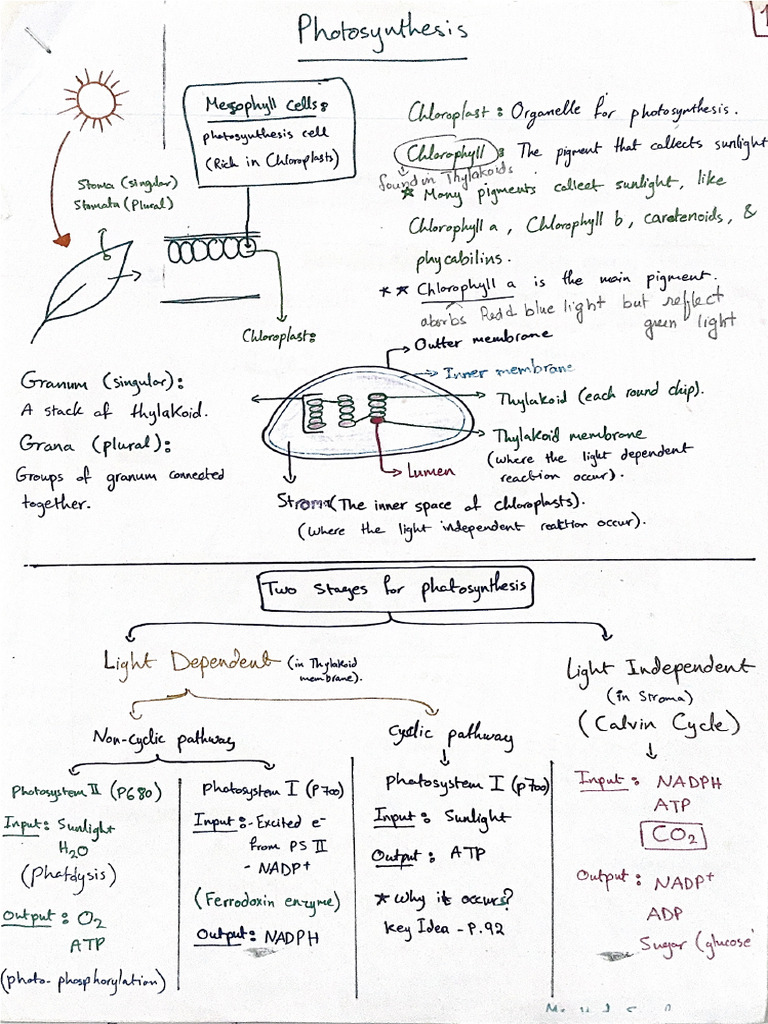 Photosynthesis
1
Mesophyll cells:
photosynthesis cell
(Rich in Chloroplasts)
Stoma (singular)
Stomata (Plural)
Chloroplast : Organelle for photosynthesis.
Chlorophyll : The pigment that collects sunlight
found in Thylakoids
* Many pigments collect sunlight, like
Chlorophyll a, Chlorophyll b, carotenoids, &
phycabilins.
** Chlorophyll a is the main pigment.
absorbs Redd blue light but reflect
green light
Chloroplast:
Outter membrane
Inner membrane
Thylakoid (each round chip).
Thylakoid membrane
(where the light dependent
reaction occur).
Lumen
Granum (singular):
A stack of thylakoid.
Grana (plural):
Groups of granum connected
together.
Stroma (The inner space of chloroplasts).
(where the light independent reaction occur).
Two stages for photosynthesis
Light Dependent (in Thylakoid
membrane).
Light Independent
(in Stroma)
(Calvin Cycle)
Non-cyclic pathway
Cyclic pathway
Photosystem II (P680)
Input: Sunlight
H2O
(Photolysis)
Output: O2
ATP
(photo-phosphorylation)
Photosystem I (P700)
Input: - Excited e-
from PS II
- NADP+
(Ferrodoxin enzyme)
Output: NADPH
Photosystem I (p700)
Input: Sunlight
Output: ATP
* Why it occurs?
Key Idea - P.92
Input: NADPH
ATP
CO2
Output: NADP+
ADP
Sugar (glucose